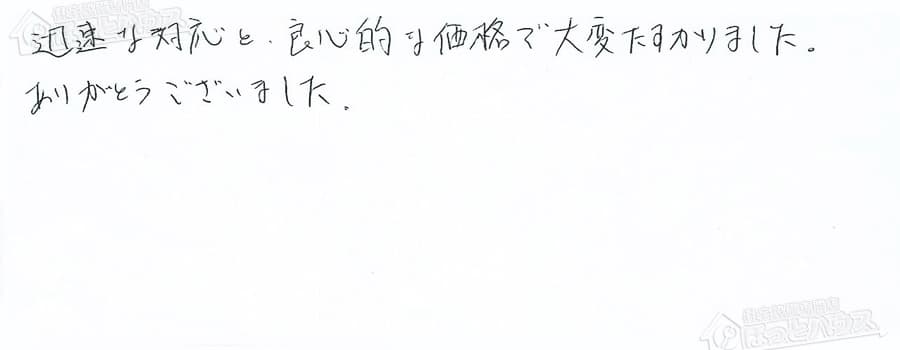 迅速な対応と、良心的な価格で大変たすかりました。
ありがとうございました。
ほっとハウス